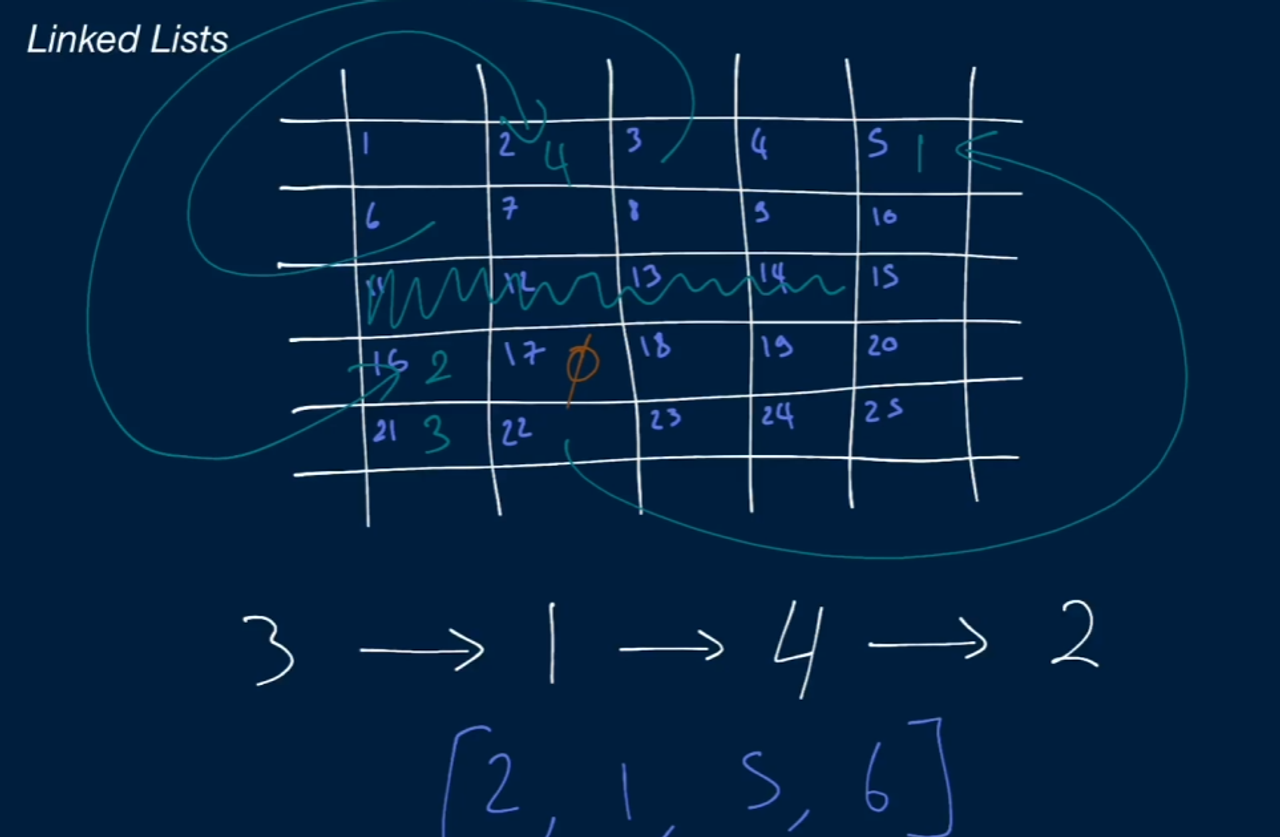 Linked Lists
1 2 4 3 4 5 1
6 7 8 9 10
11 12 13 14 15
16 2 17 Ø 18 19 20
21 3 22 23 24 25
3 → 1 → 4 → 2
[2, 1, 5, 6]